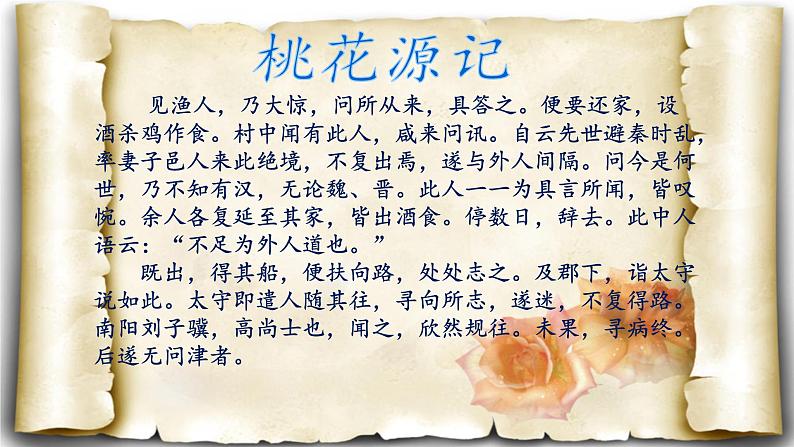 桃花源记
见渔人，乃大惊，问所从来，具答之。便要还家，设
酒杀鸡作食。村中闻有此人，咸来问讯。自云先世避秦时乱，
率妻子邑人来此绝境，不复出焉，遂与外人间隔。问今是何
世，乃不知有汉，无论魏、晋。此人一一为具言所闻，皆叹
惋。余人各复延至其家，皆出酒食。停数日，辞去。此中人
语云：“不足为外人道也。”
既出，得其船，便扶向路，处处志之。及郡下，诣太守
说如此。太守即遣人随其往，寻向所志，遂迷，不复得路。
南阳刘子骥，高尚士也，闻之，欣然规往。未果，寻病终。
后遂无问津者。